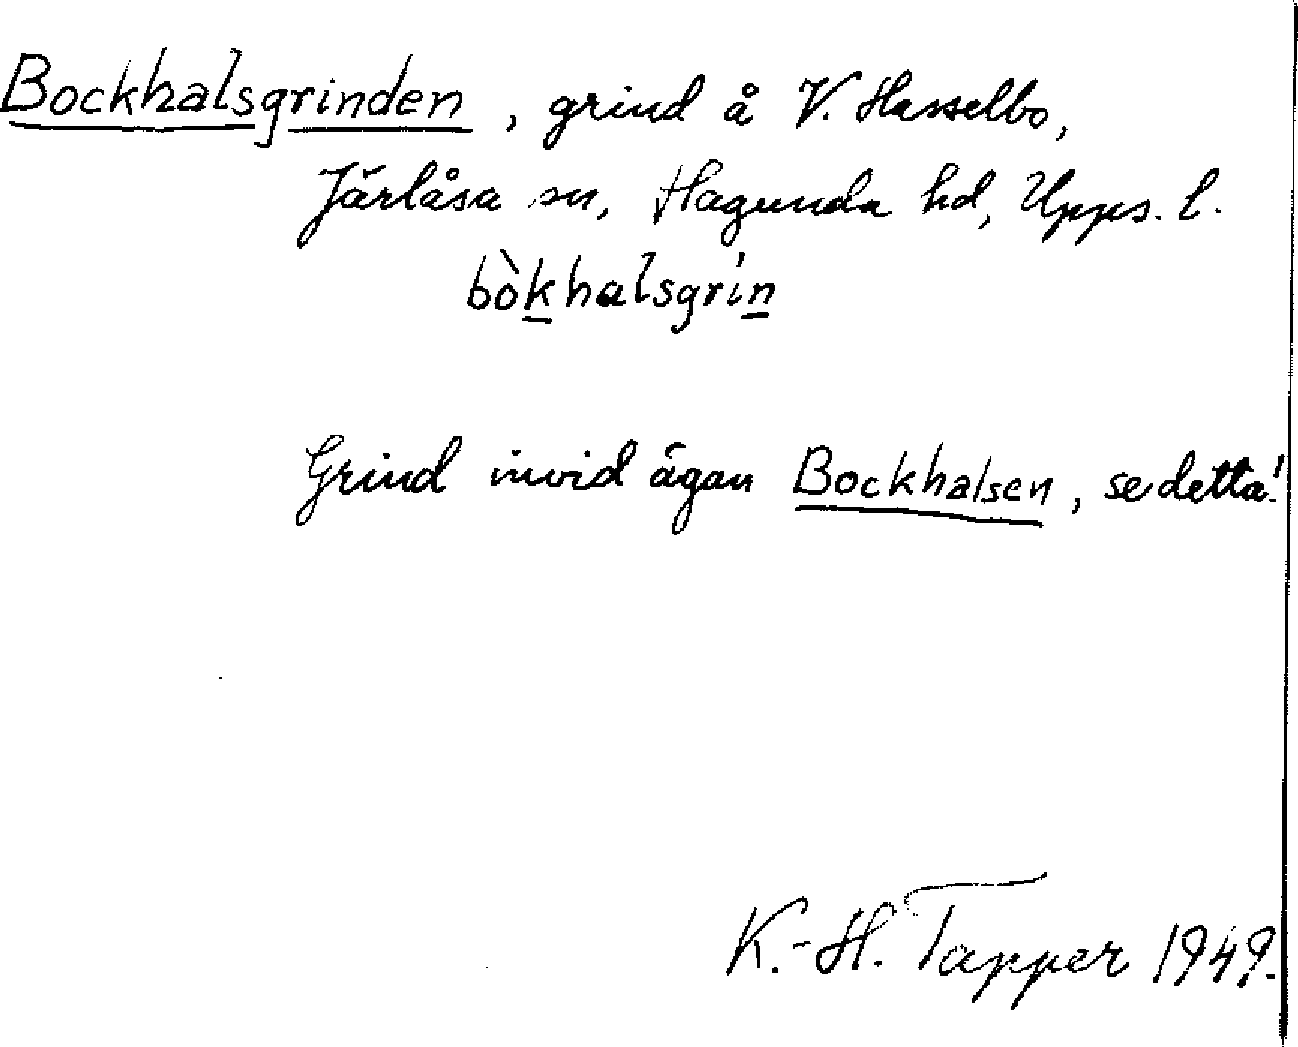 Bockhalsgrinden, grind å V. Hasselbo,
Järlåsa sn, Hagunda hd, Upps. l.
bòkhalsgrín
Grind invid ägan Bockhalsen, se detta!
K.-H. Tapper 1949.